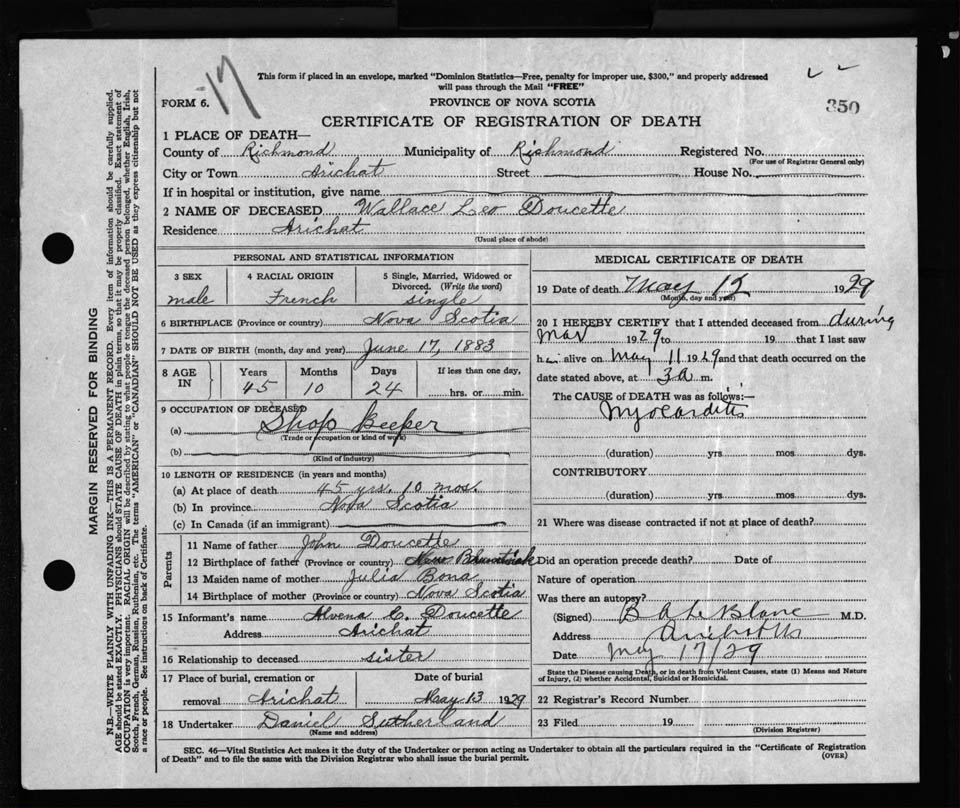 17
This form if placed in an envelope, marked "Dominion Statistics—Free, penalty for improper use, $300," and properly addressed
will pass through the Mail "FREE"
FORM 6.
PROVINCE OF NOVA SCOTIA
350
CERTIFICATE OF REGISTRATION OF DEATH
1 PLACE OF DEATH—
County of Richmond Municipality of Richmond Registered No.
(For use of Registrar General only)
City or Town Arichat Street House No.
If in hospital or institution, give name
2 NAME OF DECEASED Wallace Leo Doucette
Residence Arichat
(Usual place of abode)
PERSONAL AND STATISTICAL INFORMATION
3 SEX 4 RACIAL ORIGIN 5 Single, Married, Widowed or
Divorced. (Write the word)
male French single
6 BIRTHPLACE (Province or country) Nova Scotia
7 DATE OF BIRTH (month, day and year) June 17, 1883
8 AGE IN Years Months Days If less than one day,
45 10 24 hrs. or min.
9 OCCUPATION OF DECEASED
(a) Shop Keeper
(Trade or occupation or kind of work)
(b)
(Kind of industry)
10 LENGTH OF RESIDENCE (in years and months)
(a) At place of death 45 yrs. 10 mos.
(b) In province Nova Scotia
(c) In Canada (if an immigrant)
Parents
11 Name of father John Doucette
12 Birthplace of father (Province or country) New
13 Maiden name of mother Julia Bona
14 Birthplace of mother (Province or country) Nova Scotia
15 Informant's name Alvena C. Doucette
Address Arichat
16 Relationship to deceased sister
17 Place of burial, cremation or Date of burial
removal Arichat May 13 1929
18 Undertaker Daniel Sutherland
(Name and address)
MEDICAL CERTIFICATE OF DEATH
19 Date of death May 12 1929
(Month, day and year)
20 I HEREBY CERTIFY that I attended deceased from during
Mar 1929 to 19 that I last saw
h im alive on May 11 1929 and that death occurred on the
date stated above, at 3 a m.
The CAUSE of DEATH was as follows:—
Myocarditis
(duration) yrs. mos. dys.
CONTRIBUTORY
(duration) yrs. mos. dys.
21 Where was disease contracted if not at place of death?
Did an operation precede death? Date of
Nature of operation
Was there an autopsy?
(Signed) B A LeBlanc M.D.
Address Arichat NS
Date May 17/29
State the Disease causing Death, or in death from Violent Causes, state (1) Means and Nature
of Injury, (2) whether Accidental, Suicidal or Homicidal.
22 Registrar's Record Number
23 Filed 19
(Division Registrar)
SEC. 46—Vital Statistics Act makes it the duty of the Undertaker or person acting as Undertaker to obtain all the particulars required in the "Certificate of Registration
of Death" and to file the same with the Division Registrar who shall issue the burial permit.
(OVER)
MARGIN RESERVED FOR BINDING
N.B.—WRITE PLAINLY WITH UNFADING INK—THIS IS A PERMANENT RECORD. Every item of information should be carefully supplied.
AGE should be stated EXACTLY. PHYSICIANS should STATE CAUSE OF DEATH in plain terms, so that it may be properly classified. Exact statement of
OCCUPATION is very important. RACIAL ORIGIN will be described by stating to what people or tongue the deceased person belonged, whether English, Irish,
Scotch, French, German, Russian, Ruthenian, etc. The terms "AMERICAN" or "CANADIAN" SHOULD NOT BE USED as they express citizenship but not
a race or people. See instructions on back of Certificate.